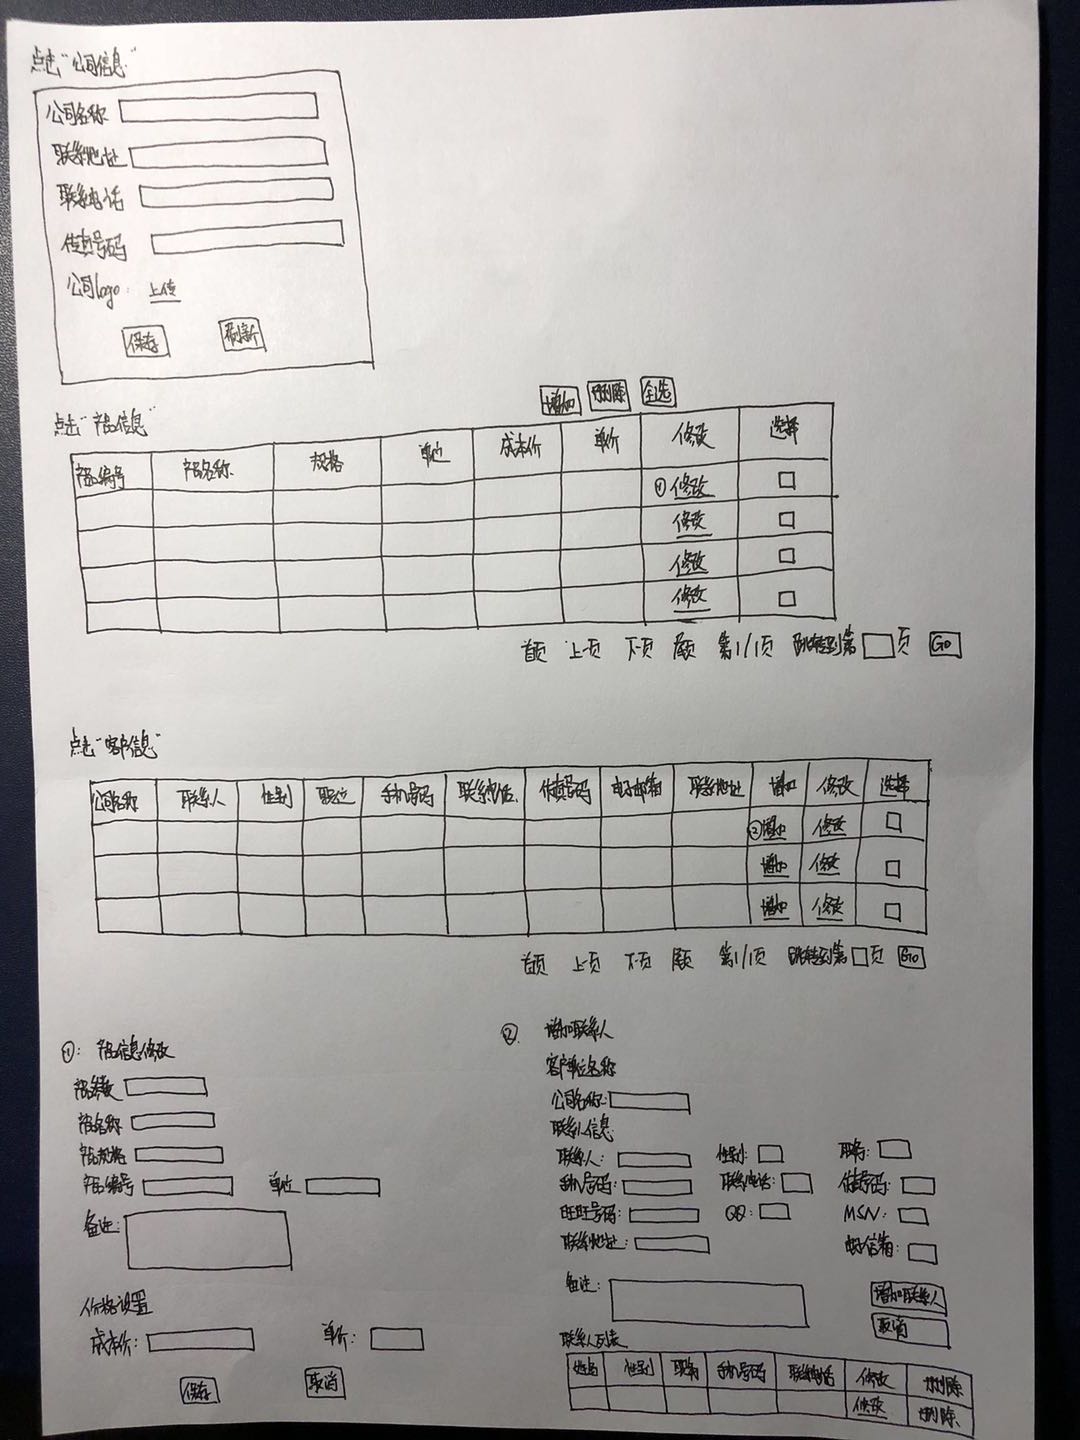 点击"公司信息"
公司名称
联系地址
联系电话
传真号码
公司logo: 上传
保存 刷新
增加 删除 全选
点击"产品信息"
产品编号 产品名称 规格 单位 成本价 单价 修改 选择
① 修改
修改
修改
修改
首页 上一页 下一页 尾页 第1/1页 跳转到第 页 GO
点击"客户信息"
公司名称 联系人 性别 职位 手机号码 联系电话 传真号码 电子邮箱 联系地址 增加 修改 选择
② 增加 修改
增加 修改
增加 修改
首页 上一页 下一页 尾页 第1/1页 跳转到第 页 GO
①: 产品信息修改
产品名称
产品规格
产品编号 单位
备注:
价格设置
成本价: 单价:
保存 取消
② 增加联系人
客户单位名称
公司名称:
联系人信息
联系人: 性别: 职务:
手机号码: 联系电话: 传真号码:
旺旺号码: QQ: MSN:
联系地址: 电子信箱:
备注:
增加联系人
取消
联系人列表
姓名 性别 职务 手机号码 联系电话 修改 删除
修改 删除